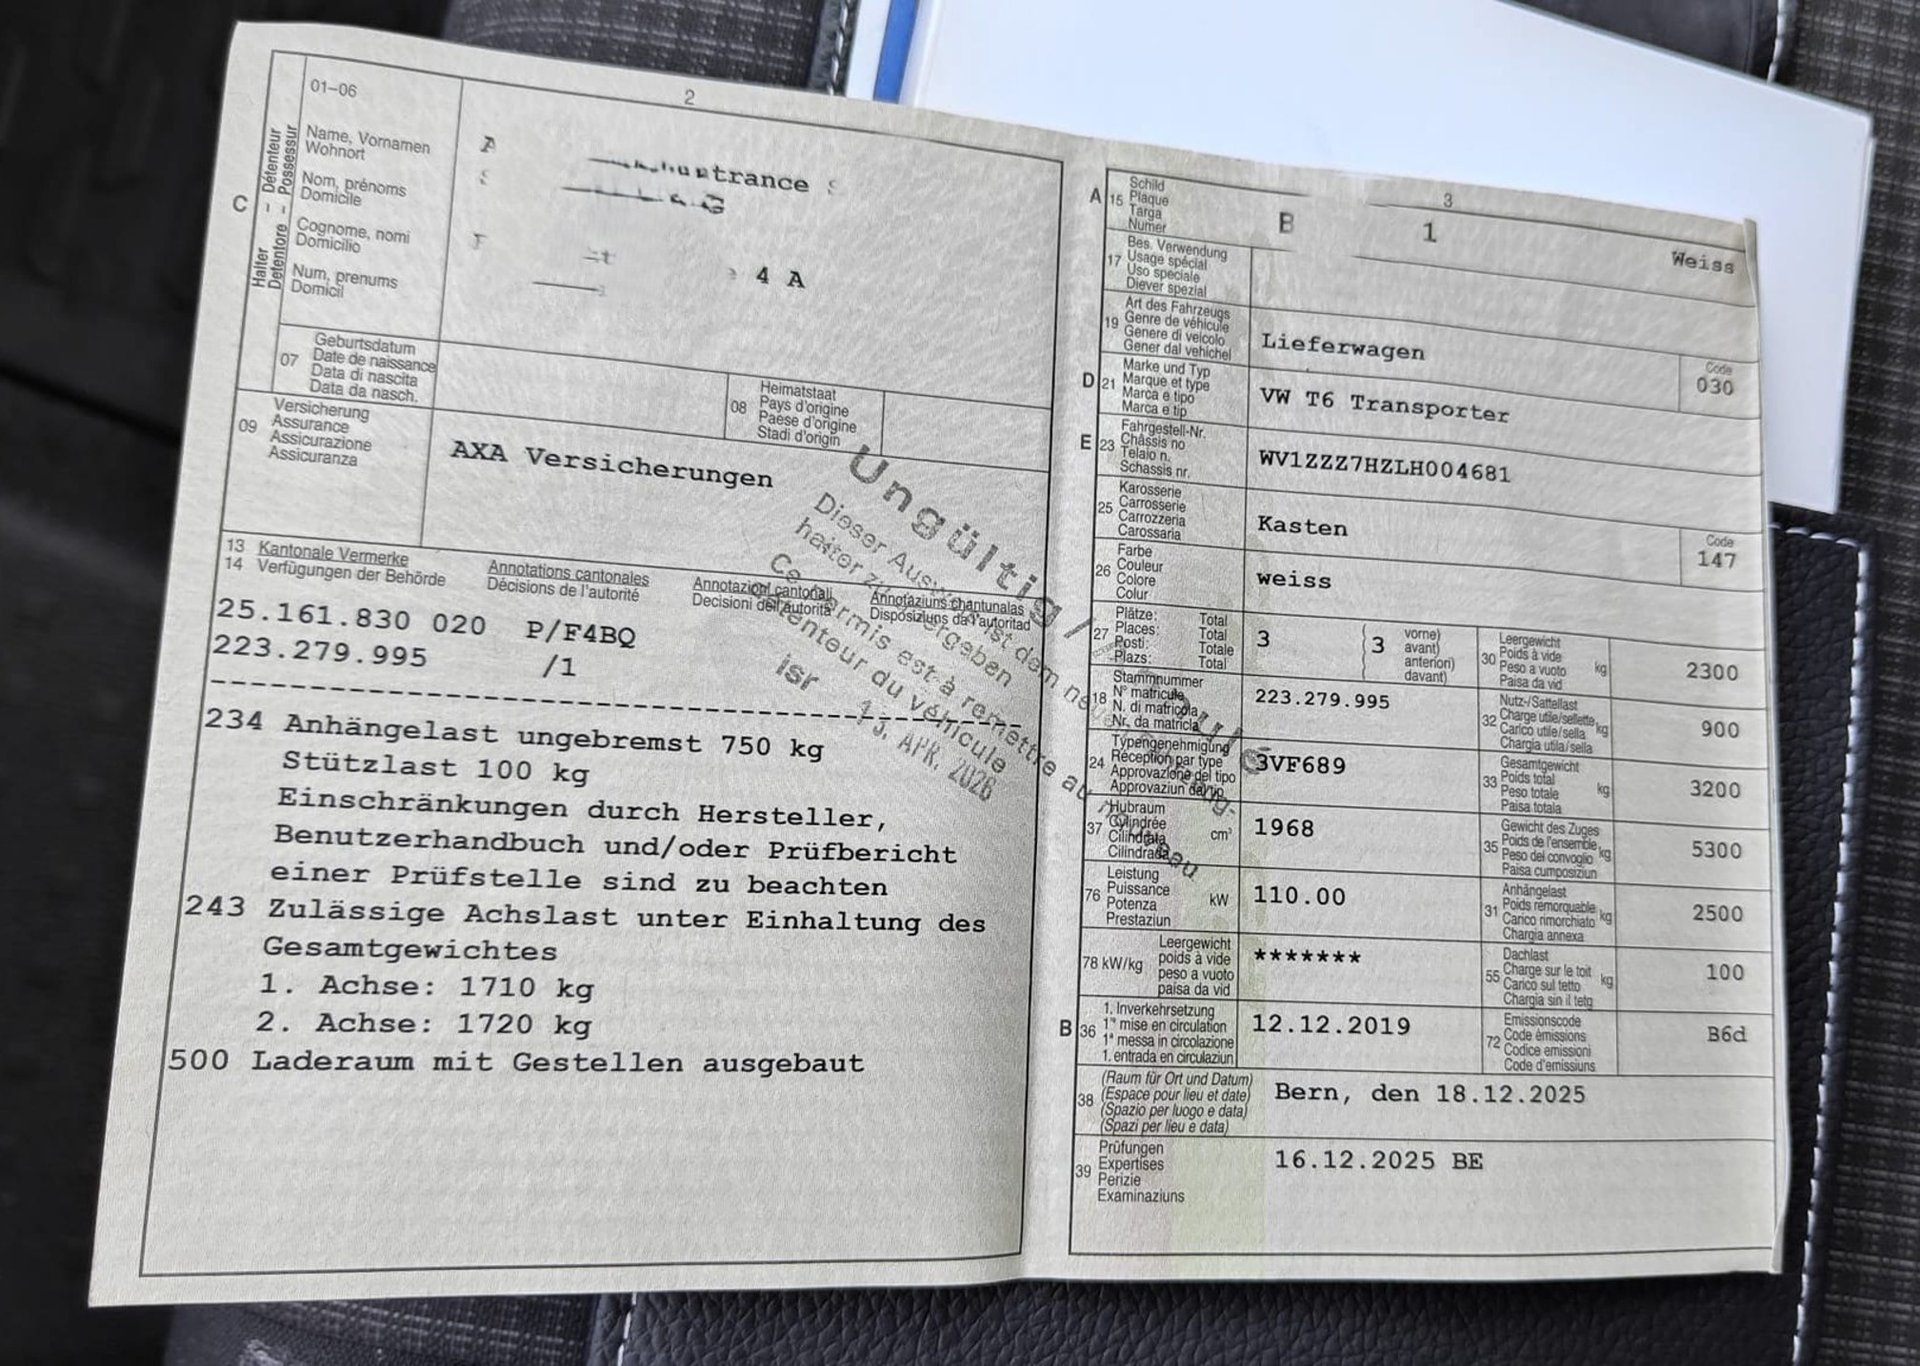 01-06
2
C
Halter – Détenteur
Detentore – Possessur
Name, Vornamen
Wohnort
Nom, prénoms
Domicile
Cognome, nomi
Domicilio
Num, prenums
Domicil
A
trance
4 A
07
Geburtsdatum
Date de naissance
Data di nascita
Data da nasch.
08
Heimatstaat
Pays d'origine
Paese d'origine
Stadi d'origin
09
Versicherung
Assurance
Assicurazione
Assicuranza
AXA Versicherungen
13 Kantonale Vermerke
14 Verfügungen der Behörde
Annotations cantonales
Décisions de l'autorité
Annotazioni cantonali
Decisioni dell'autorità
Annotaziuns chantunalas
Disposiziuns da l'autoritad
25.161.830 020 P/F4BQ
223.279.995 /1
234 Anhängelast ungebremst 750 kg
Stützlast 100 kg
Einschränkungen durch Hersteller,
Benutzerhandbuch und/oder Prüfbericht
einer Prüfstelle sind zu beachten
243 Zulässige Achslast unter Einhaltung des
Gesamtgewichtes
1. Achse: 1710 kg
2. Achse: 1720 kg
500 Laderaum mit Gestellen ausgebaut
Ungültig /
Dieser Ausweis ist dem neuen
halter zu übergeben
Ce permis est à remettre au nouveau
détenteur du véhicule
isr 13. APR. 2026
3
A 15
Schild
Plaque
Targa
Numer
B 1 Weiss
17
Bes. Verwendung
Usage spécial
Uso speciale
Diever spezial
19
Art des Fahrzeugs
Genre de véhicule
Genere di veicolo
Gener dal vehichel
Lieferwagen
Code
030
D 21
Marke und Typ
Marque et type
Marca e tipo
Marca e tip
VW T6 Transporter
E 23
Fahrgestell-Nr.
Châssis no
Telaio n.
Schassis nr.
WV1ZZZ7HZLH004681
25
Karosserie
Carrosserie
Carrozzeria
Carossaria
Kasten
Code
147
26
Farbe
Couleur
Colore
Colur
weiss
27
Plätze: Total
Places: Total
Posti: Totale
Plazs: Total
3
3
vorne)
avant)
anteriori)
davant)
30
Leergewicht
Poids à vide
Peso a vuoto
Paisa da vid
kg
2300
18
Stammnummer
N° matricule
N. di matricola
Nr. da matricla
223.279.995
32
Nutz-/Sattellast
Charge utile/sellette
Carico utile/sella
Chargia utila/sella
kg
900
24
Typengenehmigung
Réception par type
Approvazione del tipo
Approvaziun dal tip
3VF689
33
Gesamtgewicht
Poids total
Peso totale
Paisa totala
kg
3200
37
Hubraum
Cylindrée
Cilindrata
Cilindrada
cm³
1968
35
Gewicht des Zuges
Poids de l'ensemble
Peso del convoglio
Paisa cumposiziun
kg
5300
76
Leistung
Puissance
Potenza
Prestaziun
kW
110.00
31
Anhängelast
Poids remorquable
Carico rimorchiato
Chargia annexa
kg
2500
78 kW/kg
Leergewicht
poids à vide
peso a vuoto
paisa da vid
*******
55
Dachlast
Charge sur le toit
Carico sul tetto
Chargia sin il tetg
kg
100
B 36
1. Inverkehrsetzung
1re mise en circulation
1a messa in circolazione
1. entrada en circulaziun
12.12.2019
72
Emissionscode
Code émissions
Codice emissioni
Code d'emissiuns
B6d
38
(Raum für Ort und Datum)
(Espace pour lieu et date)
(Spazio per luogo e data)
(Spazi per lieu e data)
Bern, den 18.12.2025
39
Prüfungen
Expertises
Perizie
Examinaziuns
16.12.2025 BE